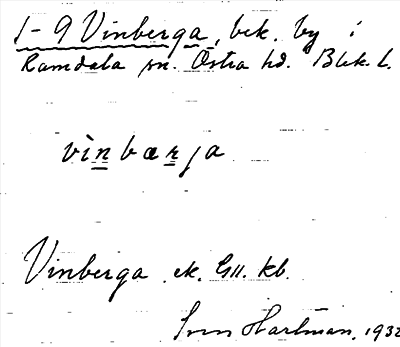 1-9 Vinberga, bek. by i
Ramdala sn. Östra hd. Blek. l.
vìnbærja
Vinberga ek. GII. kb.
Sven Hartman. 1932